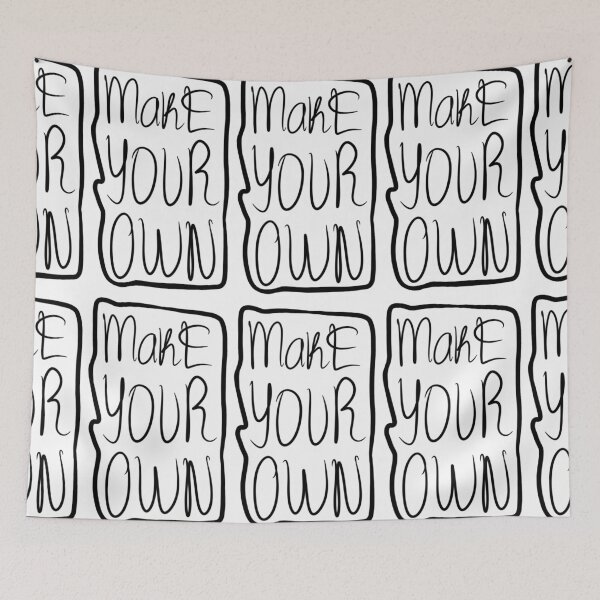 E
R
N
MakE
YOUR
OWN
MakE
YOUR
OWN
MakE
YOUR
OWN
M
Y
O
E
R
N
MakE
YOUR
OWN
MakE
YOUR
OWN
MakE
YOUR
OWN
M
Y
O